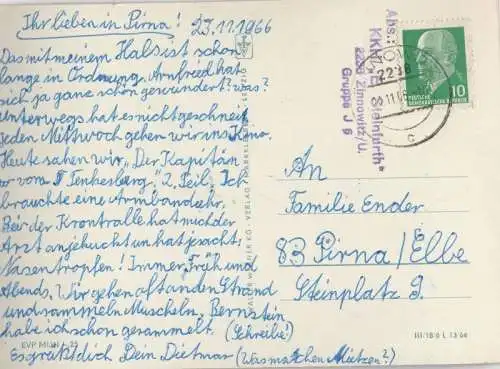 Ihr lieben in Pirna! 23.11.1966
Das mit meinem Hals ist schon
lange in Ordnung. Arnfried hat
sich ja ganz schön gewundert! was?
Unterwegs hat es nicht geschneit
jeden Mittwoch gehen wir ins Kino.
Heute sahen wir, "Der Kapitän
vom Tenkesberg" 2. Teil. Ich
brauchte eine Armbanduhr.
Bei der Krontralle hat mich der
Arzt angekuckt un hat jesacht:
Nasentropfen! Immer Früh und
Abends. Wir gehen oft an den Strand
und sammeln Muscheln. Bernstein
habe ich schon gesammelt. (Schreibe!)
Es grüßt dich Dein Dietmar (Was machen Mietzen?)
EVP MDN
VERLAG
Abs.:
KKH "E. Steinfurth"
2238 Zinnowitz/U.
Gruppe J 6
2238
11.66
c
10
DEUTSCHE
DEMOKRATISCHE REPUBLIK
An
Familie Ender
83 Pirna/Elbe
Steinplatz 9.
III/18/6 L 13/64